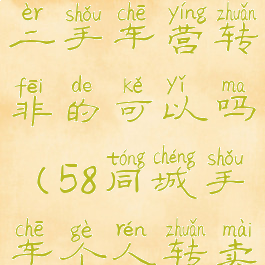 èr shǒu chē yíng zhuǎn
二手车营转
fēi de kě yǐ ma
非的可以吗
tóng chéng shǒu
(58同城手
chē gè rén zhuǎn mài
车个人转卖